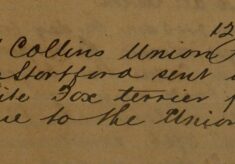 12
Collins Union
Stortford sent
Fox terrier
to the Union